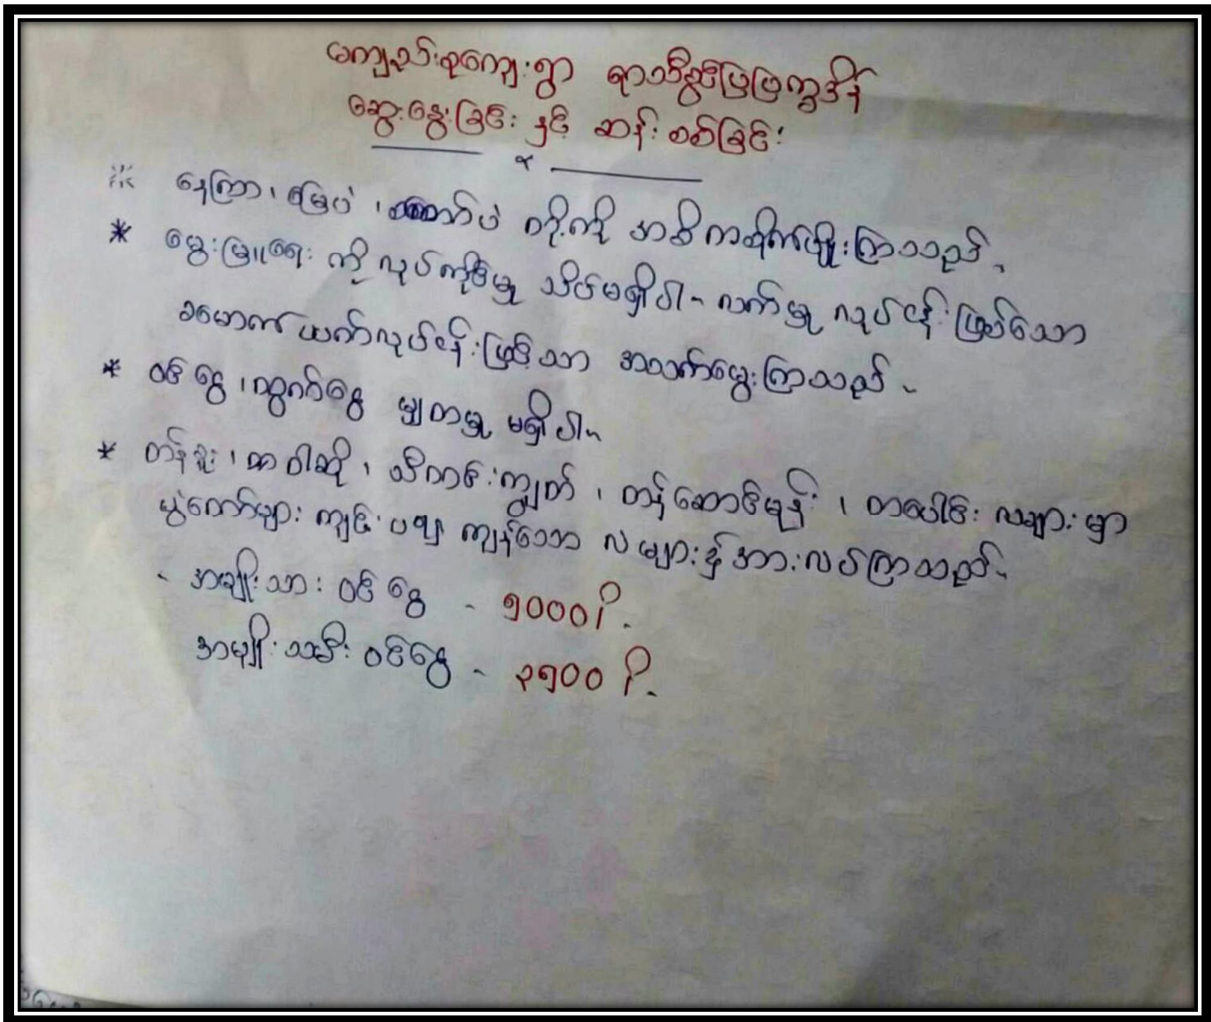 မကျည်းစုကျေးရွာ ရာသီဥပြပြက္ခဒိန်
ဆွေးနွေးခြင်း နှင့် ဆန်းစစ်ခြင်း
* နေကြာ၊ မြေပဲ ၊ ထောပဲ တို့ကို အဓိကစိုက်ပျိုးကြသည်။
* မွေးမြူရေး ကို လုပ်ကိုင်မှု သိပ်မရှိပါ။ လက်မှု လုပ်ငန်းဖြစ်သော
ခမောက်ယက်လုပ်ငန်းဖြင့်သာ အသက်မွေးကြသည်။
* ဝင်ငွေ ၊ ထွက်ငွေ မျှတမှု မရှိပါ။
* တန်ခူး ၊ ဆာဝါဆို ၊ သီတင်းကျွတ် ၊ တန်ဆောင်မုန်း ၊ တပေါင်း လများမှာ
ပွဲတော်များ ကျင်းပ၍ ကျန်သော လများ၌ အားလပ်ကြသည်။
- အမျိုးသား ဝင်ငွေ - ၅၀၀၀ိ/.
အမျိုးသမီး ဝင်ငွေ - ၃၅၀၀ ိ/.